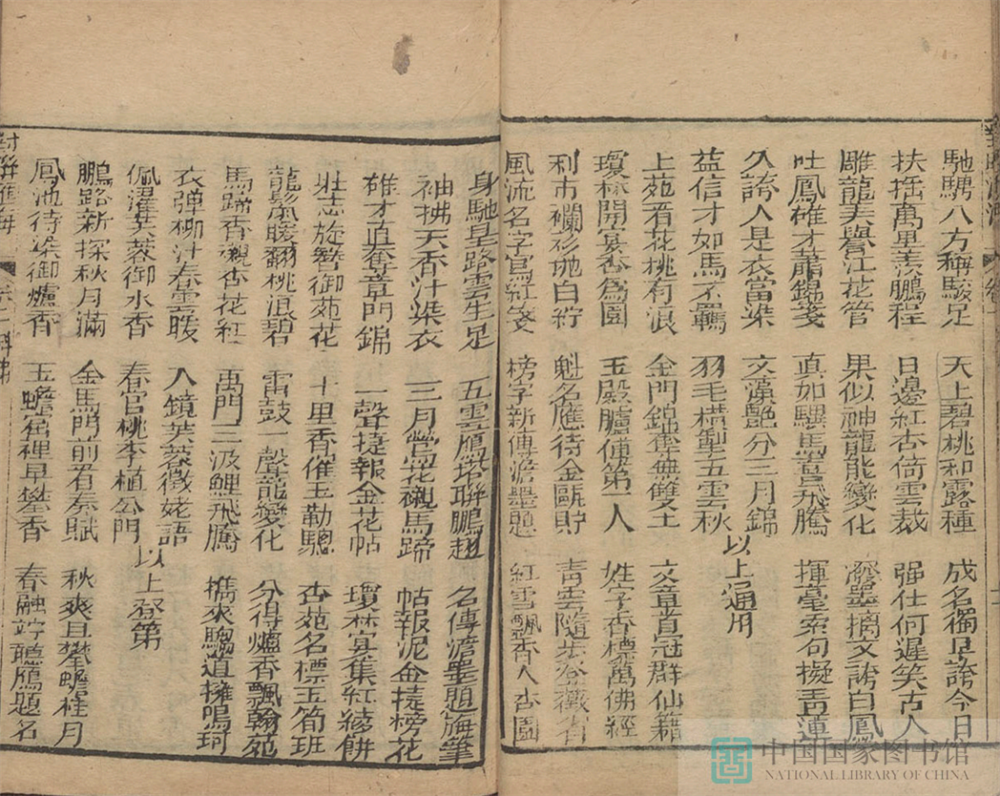 馳騁八方稱駿足 天上碧桃和露種 成名獨足誇今日
扶搖萬里羨鵬程 日邊紅杏倚雲裁 强仕何遲笑古人
雕龍美譽江花管 果似神龍能變化 潑墨摛文誇白鳳
吐鳳雄才蕭錦箋 真如驥馬豈飛騰 揮毫索句擬青蓮
久誇人是衣當染 文藻艷分三月錦
益信才如馬不羈 羽毛橫製五雲秋 以上通用
上苑看花桃有浪 金門錦奪無雙士 文章首冠群仙籍
瓊林開宴杏為園 玉殿臚傳第一人 姓字香標萬佛經
利市襴衫拋白紵 魁名應待金甌貯 青雲隨步登薇省
風流名字寫紅箋 榜字新傳澹墨題 紅雪飄香入杏園
身馳皇路雲生足 五雲雁塔聯鵬翅 名傳澹墨題海筆
袖拂天香汁染衣 三月鶯花襯馬蹄 帖報泥金捷榜花
雄才直奪章門錦 一聲捷報金花帖 瓊林宴集紅綾餅
壯志旋簪御苑花 十里香催玉勒驄 杏苑名標玉筍班
龍鬣暖翻桃浪碧 雷鼓一聲龍變化 分得爐香飄翰苑
馬蹄香襯杏花紅 禹門三汲鯉飛騰 携來驄道擁鳴珂
衣彈柳汁春雲暖 入鏡芙蓉徵姥語
佩濯芙蓉御水香 春官桃李植公門 以上登第
鵬路新探秋月滿 金馬門前看奏賦 秋爽且攀蟾桂月
鳳池待染御爐香 玉蟾窟裡早攀香 春融竚聽鴈題名
對聯匯海 卷二 科第
中国国家图书馆
NATIONAL LIBRARY OF CHINA